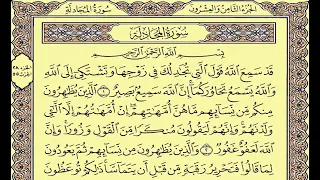 الجزء الثامن والعشرون
سورة المجادلة
سُورَةُ المُجَادلَةِ
بِسْمِ اللَّهِ الرَّحْمَٰنِ الرَّحِيمِ
قَدْ سَمِعَ اللَّهُ قَوْلَ الَّتِي تُجَٰدِلُكَ فِي زَوْجِهَا وَتَشْتَكِي إِلَى اللَّهِ
وَاللَّهُ يَسْمَعُ تَحَاوُرَكُمَا إِنَّ اللَّهَ سَمِيعٌ بَصِيرٌ ١ الَّذِينَ يُظَٰهِرُونَ
مِنكُم مِّن نِّسَائِهِم مَّا هُنَّ أُمَّهَٰتِهِمْ إِنْ أُمَّهَٰتُهُمْ إِلَّا الَّٰٓـِٔي
وَلَدْنَهُمْ وَإِنَّهُمْ لَيَقُولُونَ مُنكَرًا مِّنَ الْقَوْلِ وَزُورًا وَإِنَّ
اللَّهَ لَعَفُوٌّ غَفُورٌ ٢ وَالَّذِينَ يُظَٰهِرُونَ مِن نِّسَائِهِمْ ثُمَّ يَعُودُونَ
لِمَا قَالُوا فَتَحْرِيرُ رَقَبَةٍ مِّن قَبْلِ أَن يَتَمَاسَّا ذَٰلِكُمْ تُوعَظُونَ